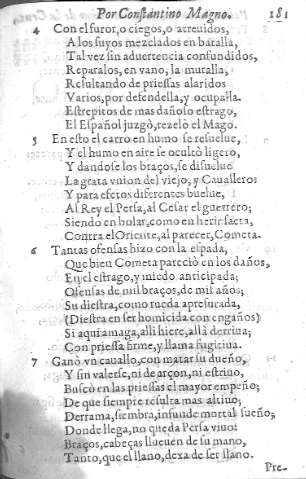 Por Constantino Magno. 181
4 Con el furor, o ciegos, o atreuidos,
A los suyos mezclados en batalla,
Tal vez sin aduertencia confundidos,
Reparalos, en vano, la muralla,
Resultando de priessas alaridos
Varios, por defendella, y ocupalla.
Estrepitos de mas dañoso estrago,
El Español juzgò, rezelò el Mago.
5 En esto el carro en humo se resuelue,
Y el humo en aire se ocultò ligero,
Y dandose los braços, se disuelue
La grata vnion del viejo, y Cauallero
Y para efetos diferentes buelue,
Al Rey el Persa, al Cesar el guerrero;
Siendo en bolar, como en herir saeta,
Contra el Oriente, al parecer, Cometa.
6 Tantas ofensas hizo con la espada,
Que bien Cometa pareciò en los daños,
En el estrago, y miedo anticipada;
Ofensas de mil braços, de mil años;
Su diestra, como rueda apresurada,
(Diestra en ser homicida con engaños)
Si aqui amaga, alli hiere, allà derriua;
Con priessa firme, y llama fugitiua.
7 Ganò vn cauallo, con matar su dueño,
Y sin valerse, ni de arçon, ni estriuo,
Buscò en las priessas el mayor empeño;
De que siempre resulta mas altiuo;
Derrama, siembra, infunde mortal sueño;
Donde llega, no queda Persa viuo:
Braços, cabeças llueuen de su mano,
Tanto, que el llano, dexa de ser llano.
Pre-